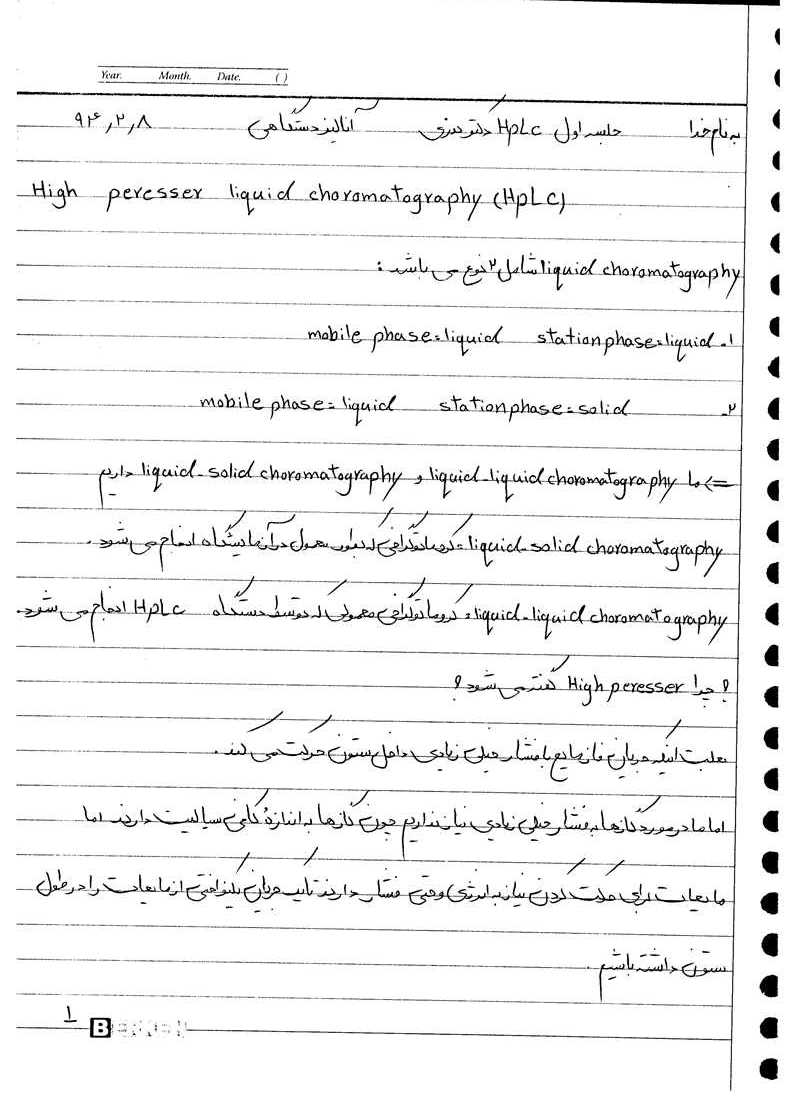 Year. Month. Date. ( )
به نام خدا جلسه اول HpLc دکتر آنالیز دستگاهی ۹۴,۲,۸
High peresser liquid choromatography (HpLc)
liquid choromatography شامل ۲ نوع می باشد :
۱- mobile phase = liquid station phase = liquid
۲- mobile phase = liquid station phase = solid
=> ما liquid-liquid choromatography و liquid-solid choromatography داریم
liquid-solid choromatography = کروماتوگرافی که بطور معمول در آزمایشگاه انجام می شود .
liquid-liquid choromatography = کروماتوگرافی معمولی که توسط دستگاه HpLc انجام می شود.
؟ چرا High peresser گفته می شود ؟
بعلت اینکه جریان فاز مایع با فشار خیلی زیادی داخل ستون حرکت می کند .
اما ما در مورد گازها به فشار خیلی زیادی نیاز نداریم چون گازها به اندازهٔ کافی سیالیت دارند اما
مایعات برای حرکت کردن نیاز به انرژی و حتی فشار دارند تا یک جریان یکنواختی از مایعات را در طول
ستون داشته باشیم .
۱
B